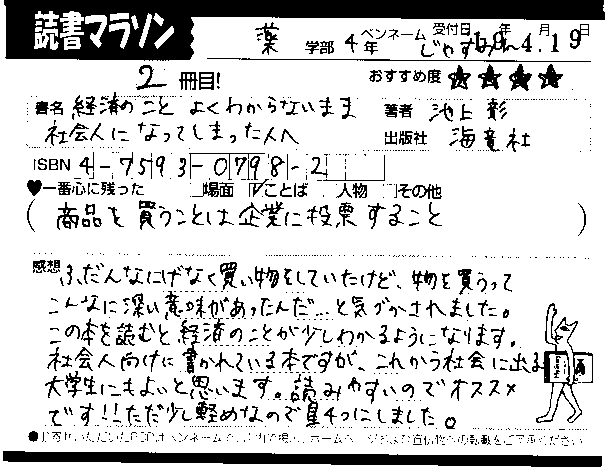 読書マラソン
薬 学部 4年 ペンネーム じゃすみん 受付日 年 4月 19日
2 冊目! おすすめ度 ★★★★
書名 経済のこと よくわからないまま 著者 池上 彰
社会人になってしまった人へ 出版社 海竜社
ISBN 4-7593-0798-2
♥一番心に残った □場面 ☑ことば □人物 □その他
(商品を買うことは企業に投票すること)
感想 ふだんなにげなく買い物をしていたけど、物を買うって
こんなに深い意味があったんだ…と気づかされました。
この本を読むと経済のことが少しわかるようになります。
社会人向けに書かれている本ですが、これから社会に出る
大学生にもよいと思います。読みやすいのでオススメ
です!!ただ少し軽めなので星4つにしました。